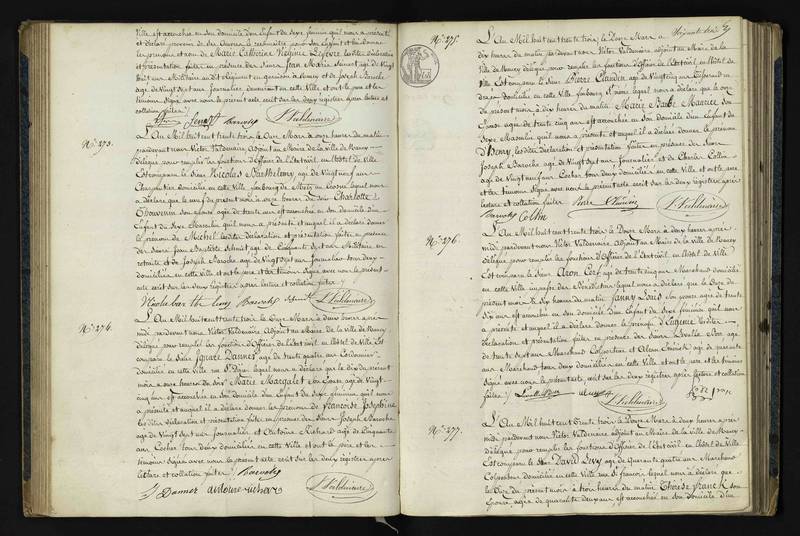 Ville est accouchée en son domicile d'un Enfant du sexe féminin qu'il nous a présenté
et déclaré provenir de ses Œuvres le reconnaître pour son Enfant et lui donner
les prénoms et nom de Marie Catherine Virginie Lefèvre lesdites déclaration
et présentation faites en présence des Sieurs Jean Marie agé de Vingt
huit ans Militaire en garnison à Nancy et de Joseph Baroche
agé de Vingt sept ans Journalier demeurant en cette Ville et ont le père et les
témoins signé avec nous le présent acte écrit sur les deux registres après lecture et
collation faites
N.º 273.
L'An Mil huit cent trente trois le Onze Mars à onze heures du matin
pardevant nous Victor Valdenaire, Adjoint au Maire de la ville de Nancy
délégué pour remplir les fonctions d'Officier de l'Etat civil en l'hôtel de Ville
Est comparu le Sieur Nicolas Barthelemy agé de Vingt neuf ans
Charpentier domicilié en cette Ville faubourg lequel nous
a déclaré que le neuf du présent mois à onze heures du soir Charlotte
Thouvenin son épouse agée de trente ans est accouchée en son domicile d'un
Enfant du Sexe Masculin qu'il nous a présenté et auquel il a déclaré donner
le prénom de Michel lesdites déclaration et présentation faites en présence
des Sieurs Jean Baptiste Schmit agé de Cinquante sept ans Militaire en
retraite et de Joseph Baroche agé de Vingt sept ans Journalier tous deux
domiciliés en cette ville et ont le père et les témoins signé avec nous le présent
acte écrit sur les deux registres après lecture et collation faites
Baroche Schmit V. Valdenaire
N.º 274.
L'An Mil huit cent trente trois le Onze Mars à deux heures après
midi pardevant nous Victor Valdenaire Adjoint au Maire de la ville de Nancy
délégué pour remplir les fonctions d'Officier de l'Etat civil en l'hôtel de Ville Est
comparu le Sieur Ignace Dannet agé de trente quatre ans Cordonnier
domicilié en cette Ville rue St Dizier lequel nous a déclaré que le dix du présent
mois à onze heures du soir Marie Margalet son Epouse agée de Vingt
cinq ans est accouchée en son domicile d'un Enfant du Sexe féminin qu'il nous
a présenté et auquel il a déclaré donner les prénoms de Françoise Joséphine
lesdites déclaration et présentation faites en présence des Sieurs Joseph Baroche
agé de Vingt sept ans Journalier et Antoine Richard agé de Cinquante
ans Cocher tous deux domiciliés en cette Ville et ont le père et les
témoins signé avec nous le présent acte écrit sur les deux registres après
lecture et collation faites Baroche
J Dannet antoine richar V. Valdenaire
N.º 275.
L'An Mil huit cent trente trois le Douze Mars à
dix heures du matin pardevant nous Victor Valdenaire adjoint au Maire de la
Ville de Nancy délégué pour remplir les fonctions d'Officier de l'Etat civil, en l'hôtel de
Ville Est comparu le Sieur Pierre Claudin agé de Vingt cinq ans
domicilié en cette Ville faubourg lequel nous a déclaré que le onze
du présent mois à dix heures du matin Marie Barbe Maurice son
Epouse agée de trente cinq ans est accouchée en son domicile d'un Enfant du
Sexe Masculin qu'il nous a présenté et auquel il a déclaré donner le prénom
d'Henry lesdites déclaration et présentation faites en présence des Sieurs
Joseph Baroche agé de Vingt sept ans Journalier et de Charles Collin
agé de Vingt neuf ans Cocher tous deux domiciliés en cette Ville et ont le père
et les témoins signé avec nous le présent acte écrit sur les deux registres après
lecture et collation faites Pierre V. Valdenaire
Baroche Collin
N.º 276.
L'An Mil huit cent trente trois le Douze Mars à deux heures après
midi pardevant nous Victor Valdenaire Adjoint au Maire de la ville de Nancy
délégué pour remplir les fonctions d'Officier de l'Etat civil en l'hôtel de Ville
Est comparu le Sieur Aron Cerf agé de trente cinq ans Marchand domicilié
en cette Ville impasse des Bénédictins lequel nous a déclaré que le Onze du
présent mois à dix heures du matin Fanny Louis son épouse agée de trente
six ans est accouchée en son domicile d'un Enfant du Sexe féminin qu'il nous
a présenté et auquel il a déclaré donner le prénom d'Eugénie lesdites
déclaration et présentation faites en présence des Sieurs agé
de trente sept ans Marchand Colporteur et agé de quarante
ans Marchand tous deux domiciliés en cette Ville et ont le père et les témoins
signé avec nous le présent acte, écrit sur les deux registres après lecture et collation
faites V. Valdenaire
N.º 277.
L'An Mil huit Cent Trente trois le Douze Mars à deux heures après
midi pardevant nous Victor Valdenaire adjoint au Maire de la Ville de Nancy
délégué pour remplir les fonctions d'Officier de l'Etat civil en l'hôtel de Ville
Est comparu le Sieur David Levy agé de Quarante quatre ans Marchand
Colporteur domicilié en cette Ville rue St françois lequel nous a déclaré que
le Dix du présent mois à trois heures du matin Thérèse Franck son
Epouse agée de quarante deux ans, est accouchée en son domicile d'un